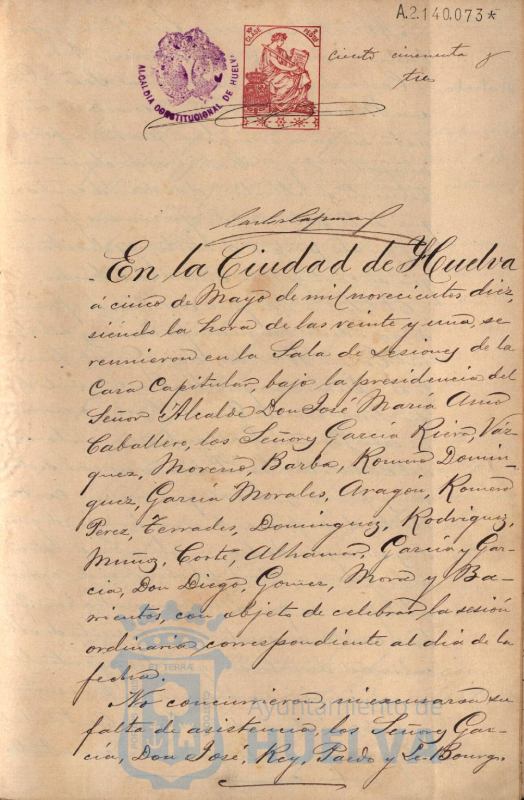 A.2.140.073*
10ª CLASE
ALCALDIA CONSTITUCIONAL DE HUELVA
ciento cincuenta y
tres
En la Ciudad de Huelva
á cinco de Mayo de mil novecientos diez,
siendo la hora de las veinte y una, se
reunieron en la Sala de Sesiones de la
Casa Capitular, bajo la presidencia del
Señor Alcalde Don José María Amo
Caballero, los Señores García Riero, Váz-
quez, Moreno, Barba, Romero Domin-
guez, García Morales, Aragón, Romero
Perez, Terrades, Dominguez, Rodriguez,
Muñoz, Corté, Alhamar, García y Gar-
cia, Don Diego, Gomez, Mora y Ba-
rrientos, con objeto de celebrar la sesión
ordinaria correspondiente al día de la
fecha.
No concurrieron ni excusaron su
falta de asistencia, los Señores Gar-
cía, Don José, Rey, Pardo y Le-Bourg.
Ayuntamiento de
HUELVA